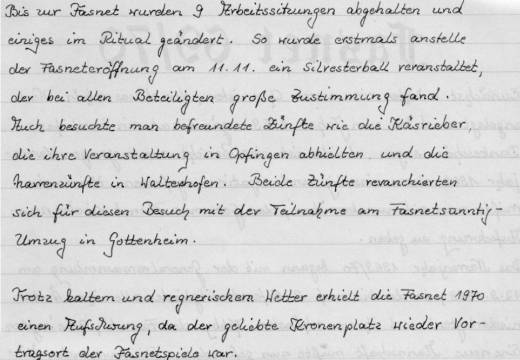 Bis zur Fasnet wurden 9 Arbeitssitzungen abgehalten und
einiges im Ritual geändert. So wurde erstmals anstelle
der Fasneteröffnung am 11.11. ein Silvesterball veranstaltet,
der bei allen Beteiligten große Zustimmung fand.
Auch besuchte man befreundete Zünfte wie die Käsrieber,
die ihre Veranstaltung in Opfingen abhielten und die
Narrenzünfte in Waltershofen. Beide Zünfte revanchierten
sich für diesen Besuch mit der Teilnahme am Fasnetsanntig-
Umzug in Gottenheim.
Trotz kaltem und regnerischem Wetter erhielt die Fasnet 1970
einen Aufschwung, da der geliebte Kronenplatz wieder Vor-
tragsort der Fasnetspiele war.